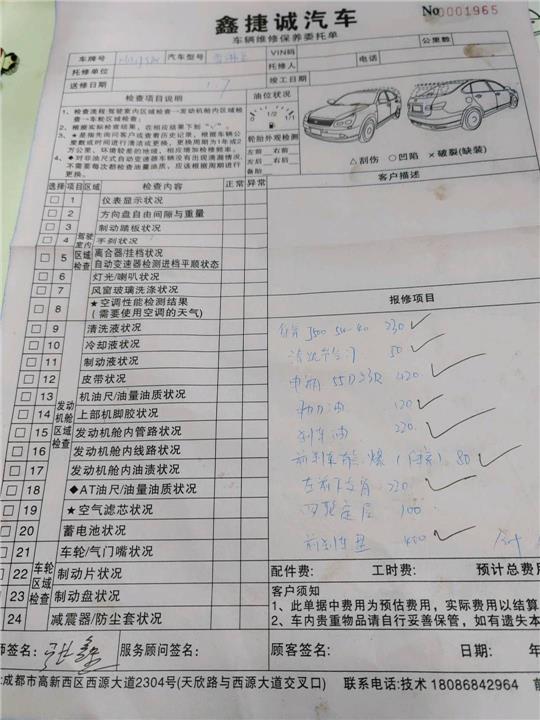 鑫捷诚汽车
车辆维修保养委托单
No 0001965
公里数
车牌号 汽车型号 VIN码
托修单位 托修人 电话
送修日期 1.7 竣工日期
检查项目说明 油位状况
1、检查流程:驾驶室内区域检查→发动机舱内区域检
查→车轮区域检查。
2、根据实际检查结果，在相应结果下划“√”。
3、★是指先询问客户或查看历史记录，根据车辆公
里数或时间进行清洁或更换，更换周期为1年或2
万公里、环境较差的地域，相应增加检修频率。
4、◆对非油尺式自动变速器车辆没有出现渗漏情况，
不需要每次都检查油量油质，应该根据周期进行
更换。
1/2
轮胎外观检测
左前 右前
左后 右后
备胎
△刮伤 ○凹陷 ×破裂(缺装)
客户描述
选择 项目 区域 检查内容 正常 异常
驾驶室内区域检查
1 仪表显示状况
2 方向盘自由间隙与重量
3 制动踏板状况
4 手刹状况
5 离合器/挂档状况
自动变速器检测进档平顺状态
6 灯光/喇叭状况
7 风窗玻璃洗涤状况
8 ★空调性能检测结果
(需要使用空调的天气)
发动机舱区域检查
9 清洗液状况
10 冷却液状况
11 制动液状况
12 皮带状况
13 机油尺/油量油质状况
14 上部机脚胶状况
15 发动机舱内管路状况
16 发动机舱内线路状况
17 发动机舱内油渍状况
18 ◆AT油尺/油量油质状况
19 ★空气滤芯状况
20 蓄电池状况
车轮区域检查
21 车轮/气门嘴状况
22 制动片状况
23 制动盘状况
24 减震器/防尘套状况
报修项目
5W-40 230 ✓
清洗节气门 50 ✓
电瓶 55D23R 420 ✓
助力油 120 ✓
刹车油 220 ✓
前刹车 80 ✓
左前下支臂 220 ✓
四轮定位 100
前刹车盘 450 ✓
配件费: 工时费: 预计总费用
客户须知
1、此单据中费用为预估费用，实际费用以结算
2、车内贵重物品请自行妥善保管，如有遗失本
师签名: 张鑫 服务顾问签名: 顾客签名: 日期: 年
:成都市高新西区西源大道2304号(天欣路与西源大道交叉口) 联系电话:技术 18086842964 前